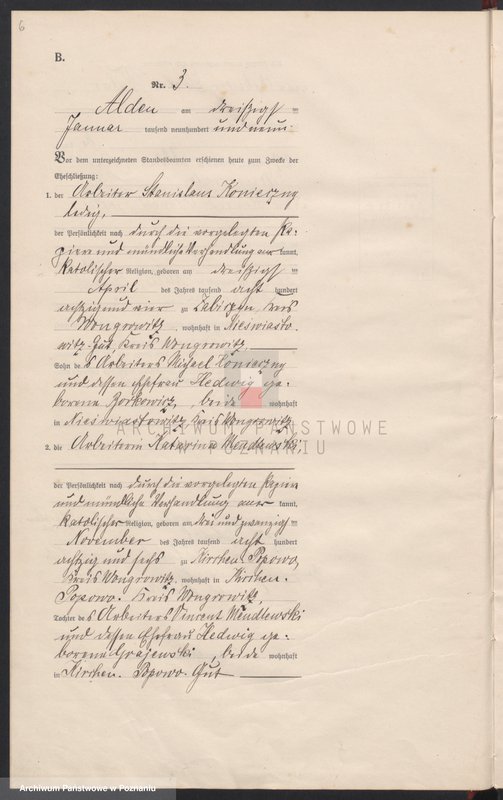 6
B.
Nr. 3.
Alden am dreißigsten
Januar tausend neunhundert und neun.
Vor dem unterzeichneten Standesbeamten erschienen heute zum Zwecke der
Eheschließung:
1. der Arbeiter Stanislaus Konierzny
ledig,
der Persönlichkeit nach durch die vorgelegten Pa-
piere und mündliche Verhandlung aner kannt,
katolischer Religion, geboren am dreißigsten
April des Jahres tausend acht hundert
achtzig und vier zu Kreis
Wongrowitz, wohnhaft in Nieswiasto-
witz Gut, Kreis Wongrowitz,
Sohn des Arbeiters Michael Konierzny
und dessen Ehefrau Hedwig ge-
borene Borkowicz, beide wohnhaft
in Nieswiastowitz, Kreis Wongrowitz
2. die Arbeiterin Katarina Mendlewski,
der Persönlichkeit nach durch die vorgelegten Papiere
und mündliche Verhandlung aner kannt,
katolischer Religion, geboren am drei und zwanzigsten
November des Jahres tausend acht hundert
achtzig und sechs zu Kirchen. Popowo,
Kreis Wongrowitz, wohnhaft in Kirchen.
Popowo. Kreis Wongrowitz,
Tochter des Arbeiters Vincent Mendlewski
und dessen Ehefrau Hedwig ge-
borene Grajewski, beide wohnhaft
in Kirchen. Popowo. Gut
ARCHIWUM PAŃSTWOWE
W POZNANIU
Archiwum Państwowe w Poznaniu